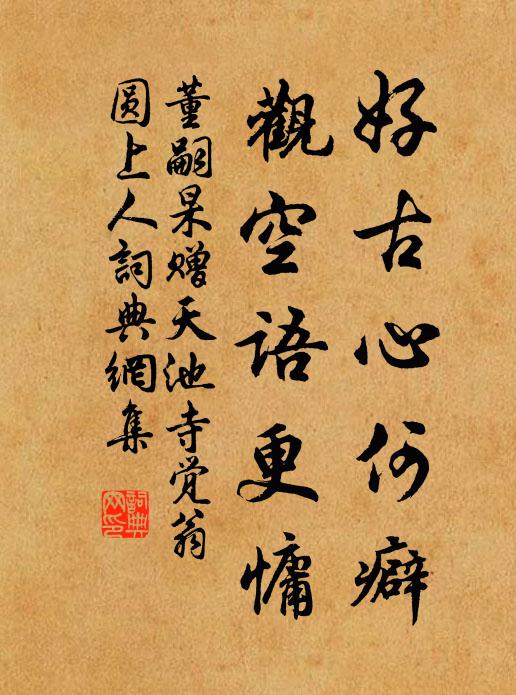 好古心何癖
觀空語更慵
董嗣杲赠天池寺觉翁
圆上人詞典網集
詞典網印